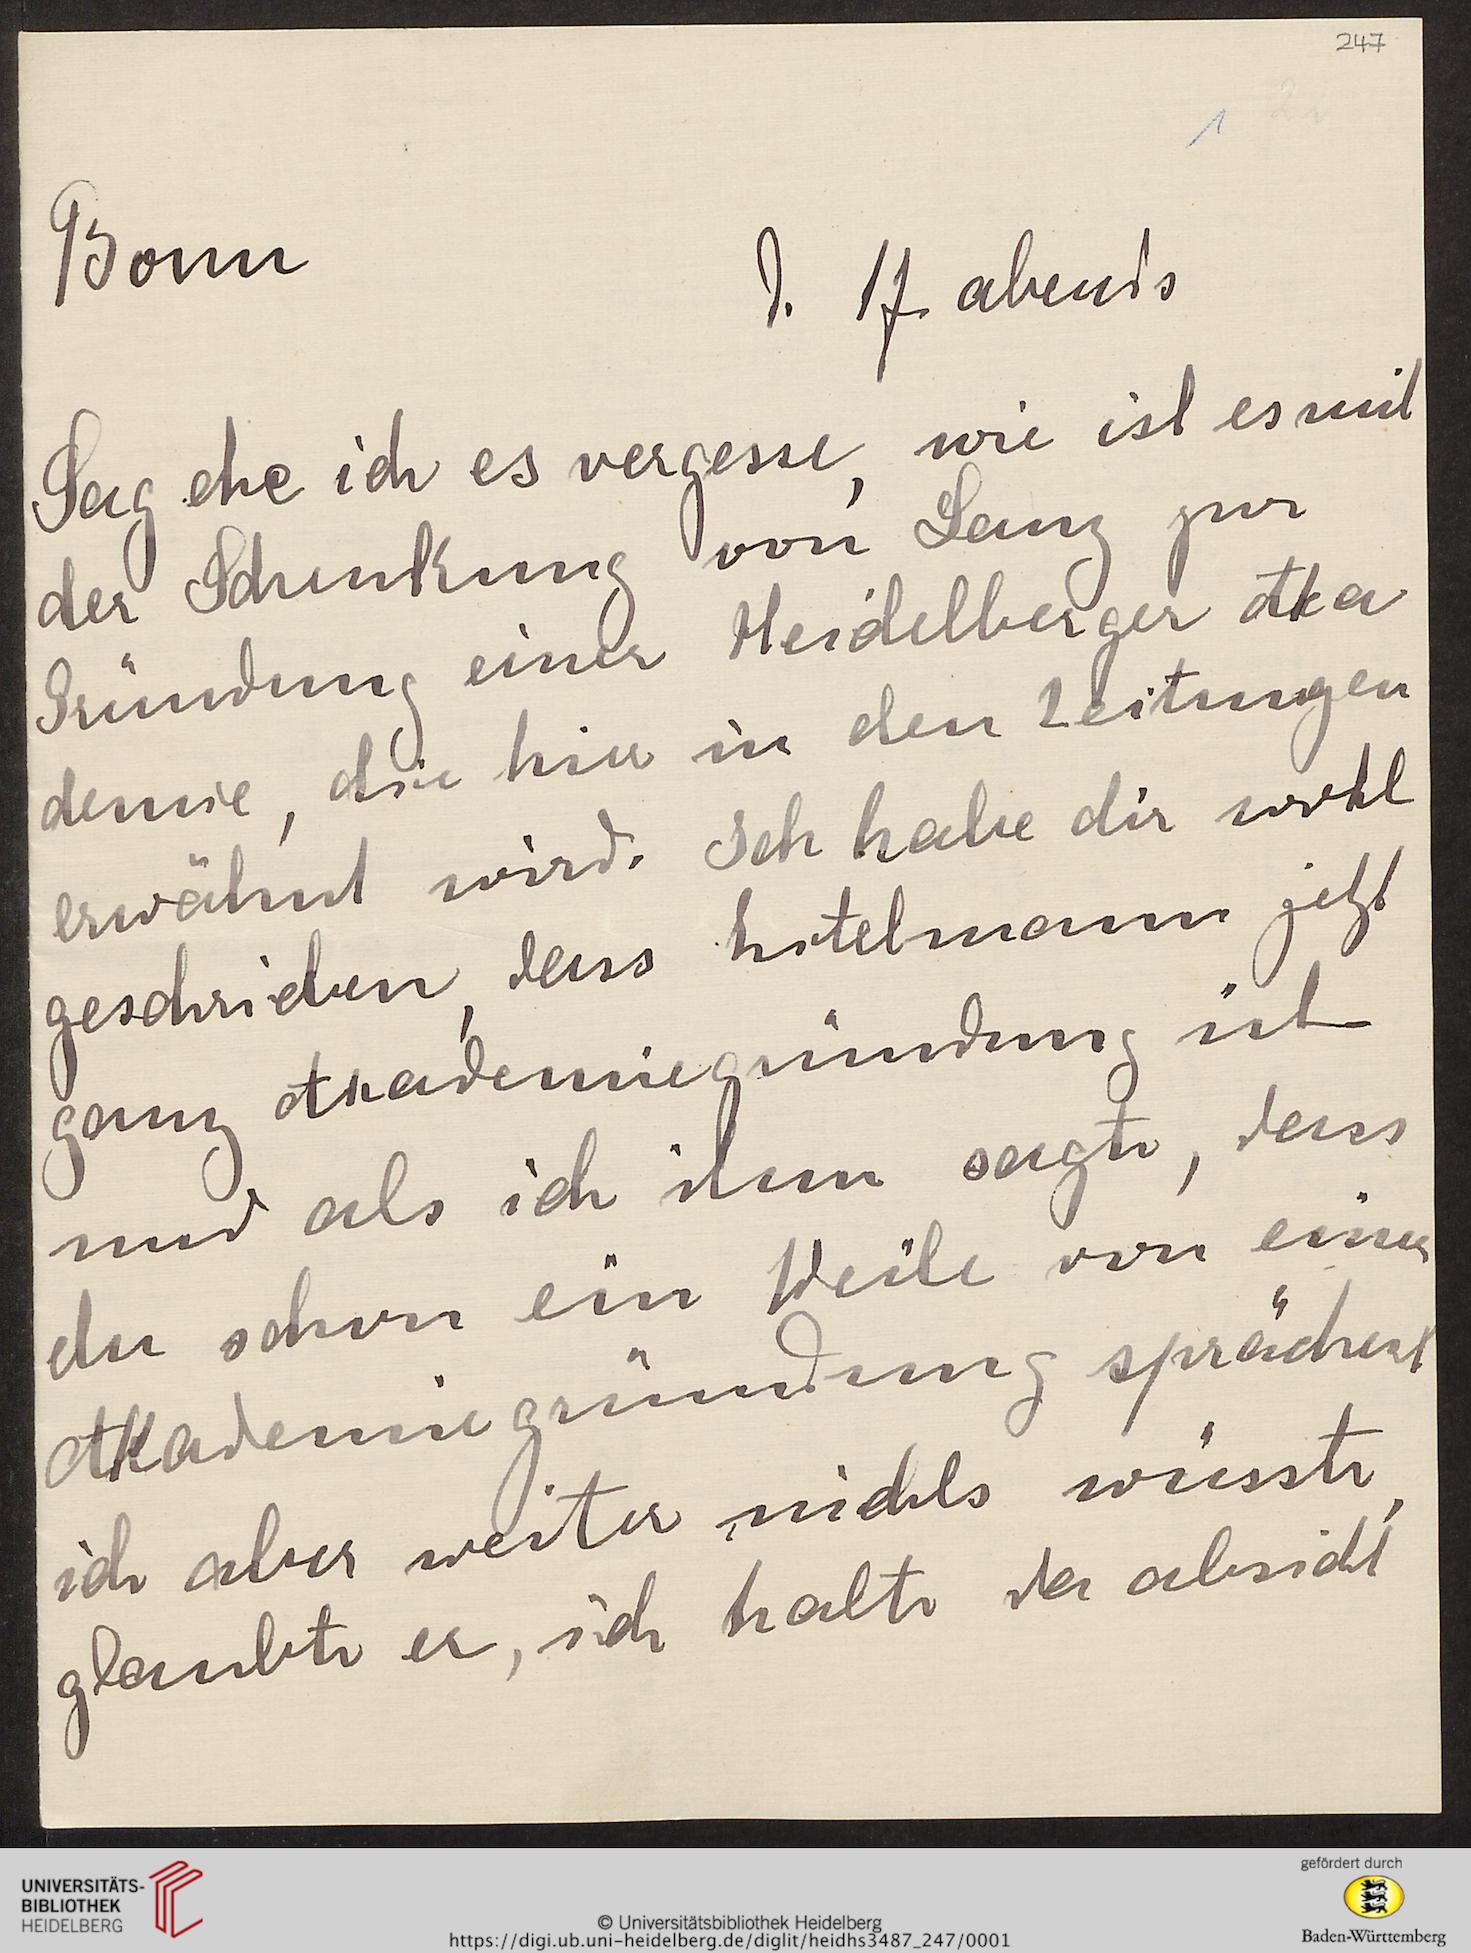 247
1
Bonn
d. 17. abends
Sag ehe ich es vergesse, wie ist es mit
der Schenkung von Lanz zur
Gründung einer Heidelberger Aka
demie, die hier in den Zeitungen
erwähnt wird. Ich habe dir wohl
geschrieben, dass hotelmann jetzt
ganz Akademiegründung ist
und als ich ihm sagte, dass
du schon ein Weile von einer
Akademiegründung sprächest
ich aber weiter nichts wüsste,
glaubte er, ich halte da absicht
UNIVERSITÄTS-
BIBLIOTHEK
HEIDELBERG
© Universitätsbibliothek Heidelberg
https://digi.ub.uni-heidelberg.de/diglit/heidhs3487_247/0001
gefördert durch
Baden-Württemberg